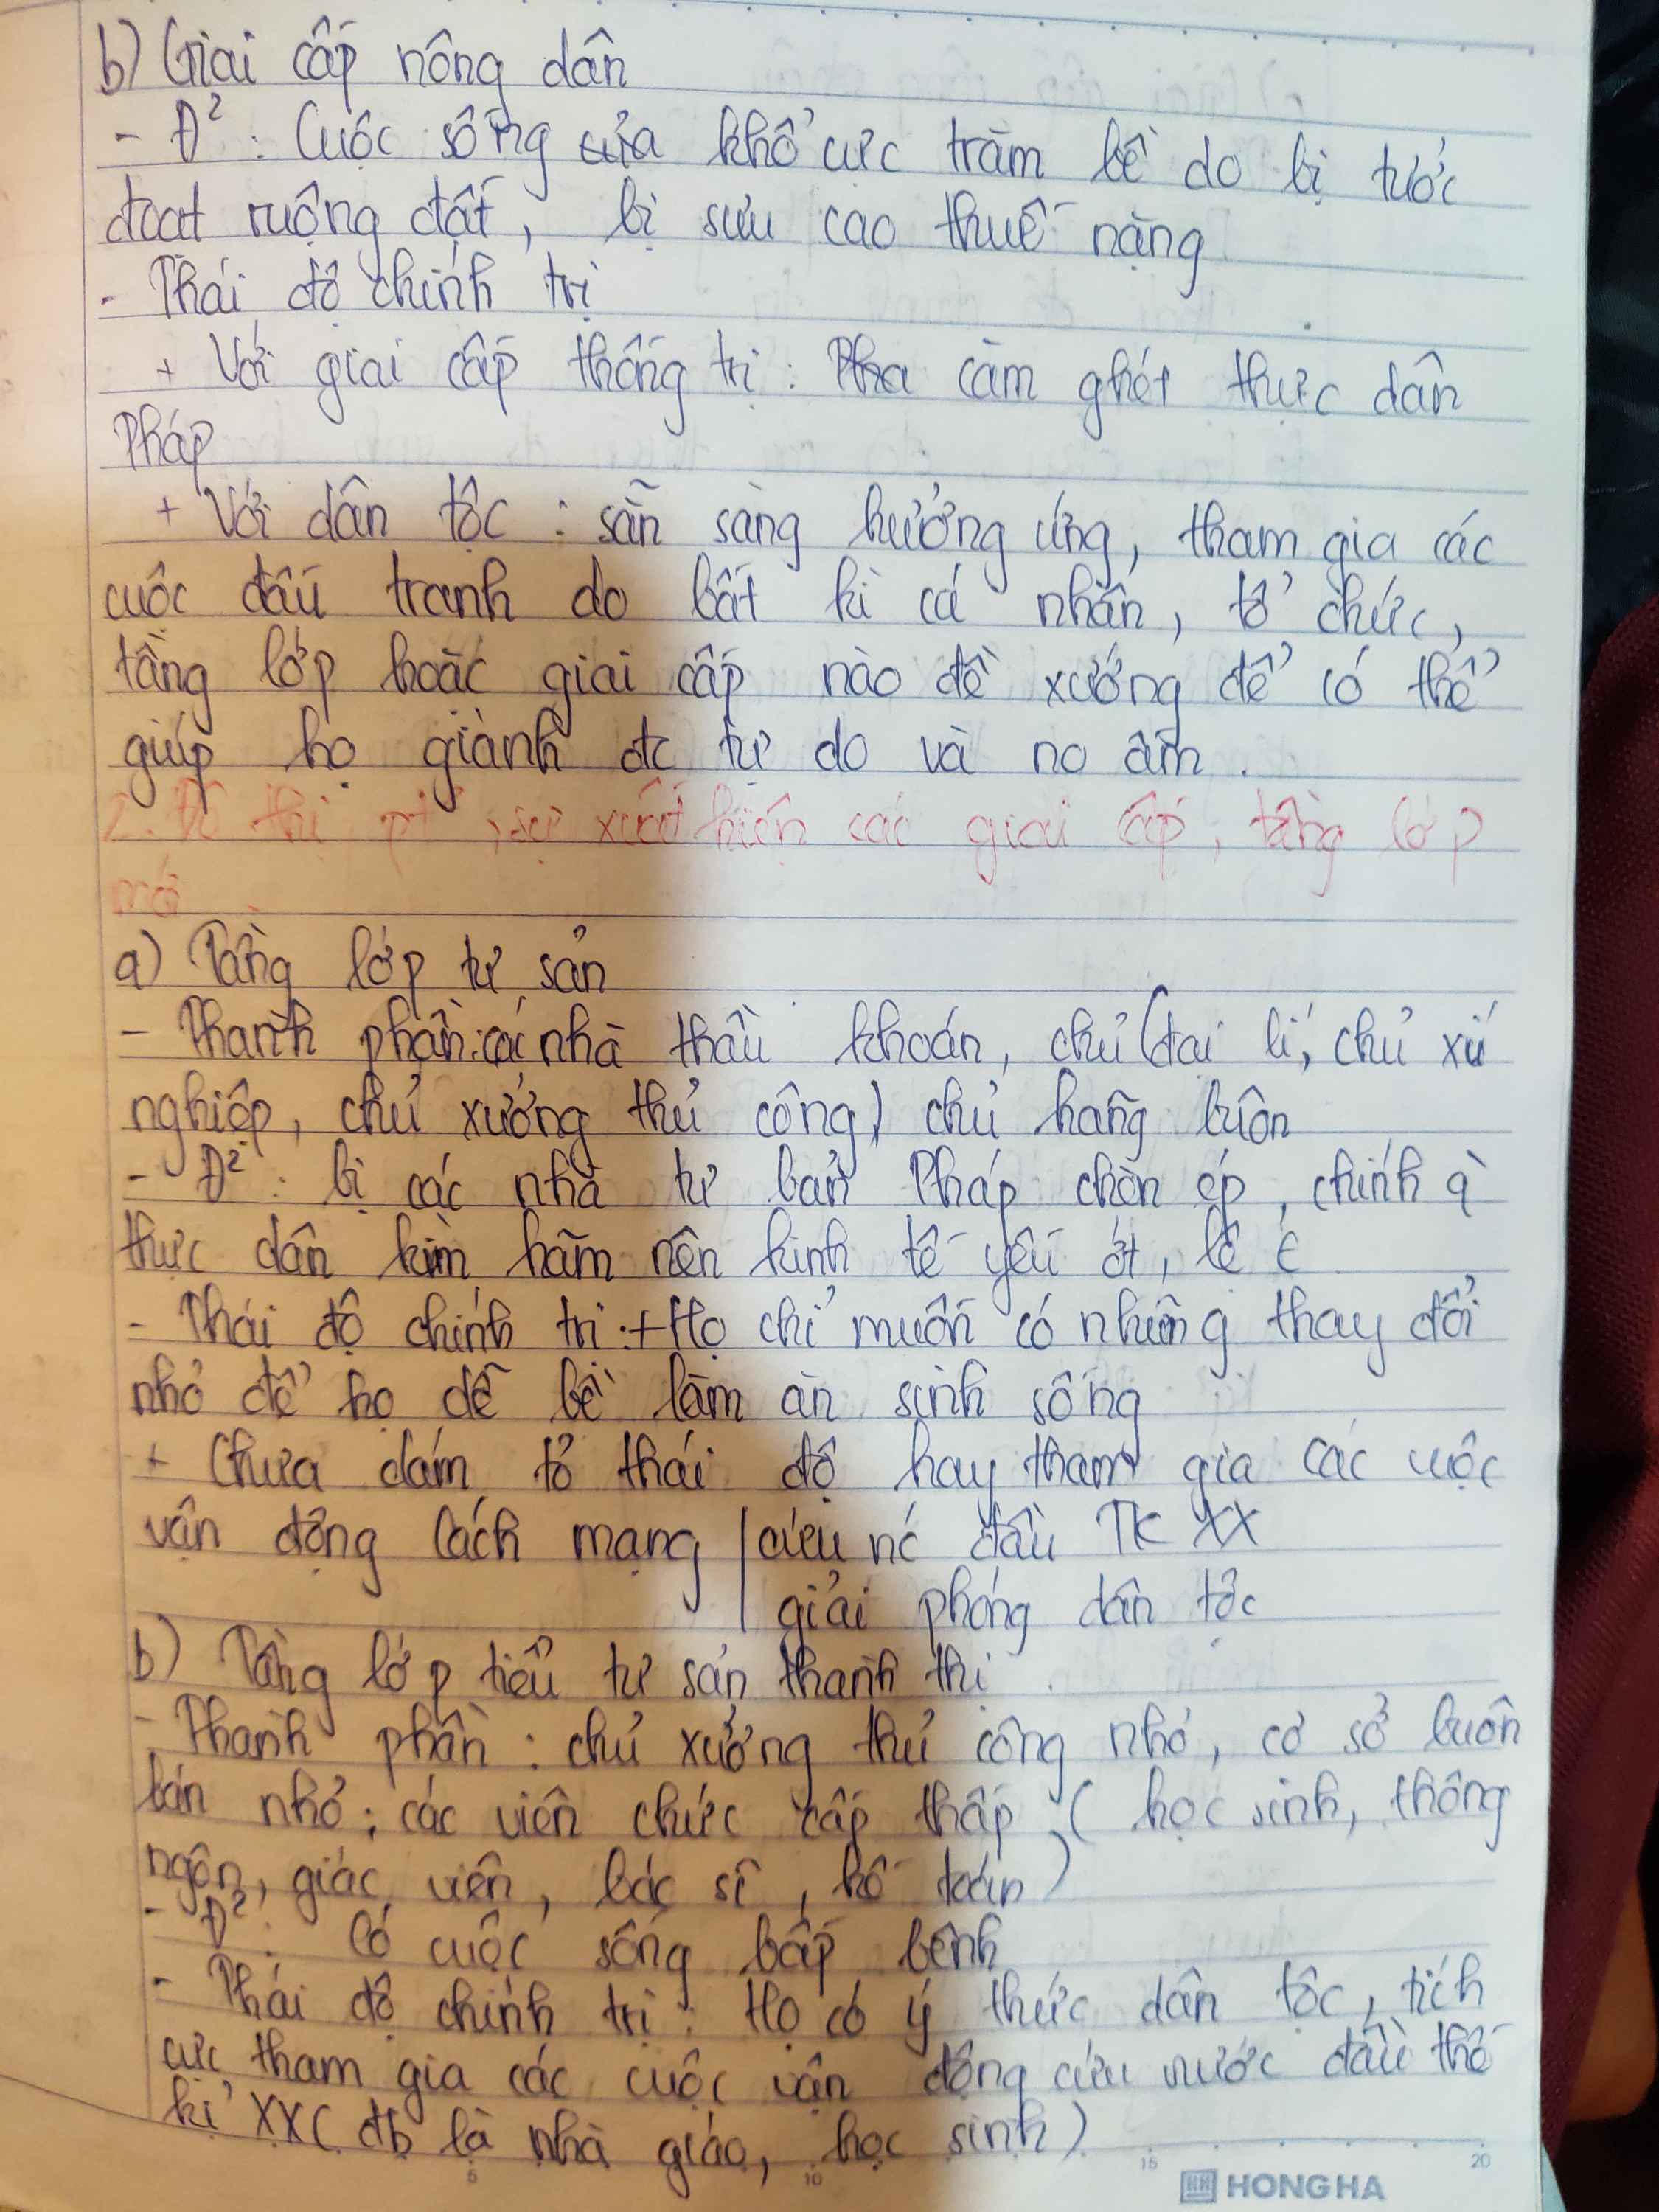 b) Giai cấp nông dân
- Đ²: Cuộc sống của khổ cực trăm bề do bị tước
đoạt ruộng đất, bị sưu cao thuế nặng
- Thái độ chính trị
+ Với giai cấp thống trị: căm ghét thực dân
Pháp
+ Với dân tộc: sẵn sàng hưởng ứng, tham gia các
cuộc đấu tranh do bất kì cá nhân, tổ chức,
tầng lớp hoặc giai cấp nào đề xướng để có thể
giúp họ giành đc tự do và no ấm.
2. Đô thị pt, sự xuất hiện các giai cấp, tầng lớp
mới
a) Tầng lớp tư sản
- Thành phần: các nhà thầu khoán, chủ (đại lí, chủ xí
nghiệp, chủ xưởng thủ công) chủ hãng buôn
- Đ²: bị các nhà tư bản Pháp chèn ép, chính q`
thực dân kìm hãm nên kinh tế yếu ớt, lẻ
- Thái độ chính trị: + Họ chỉ muốn có những thay đổi
nhỏ để họ dễ bề làm ăn sinh sống
+ Chưa dám tỏ thái độ hay tham gia các cuộc
vận động cách mạng | cứu nc đầu TK XX
giải phóng dân tộc
b) Tầng lớp tiểu tư sản thành thị
- Thành phần: chủ xưởng thủ công nhỏ, cơ sở buôn
bán nhỏ; các viên chức cấp thấp (học sinh, thông
ngôn, giáo viên, bác sĩ, kế toán)
- Đ²: Có cuộc sống bấp bênh
- Thái độ chính trị: Họ có ý thức dân tộc, tích
cực tham gia các cuộc vận động cứu nước đầu thế
kỉ XX (đb là nhà giáo, học sinh)
5 10 15 20
HONG HA